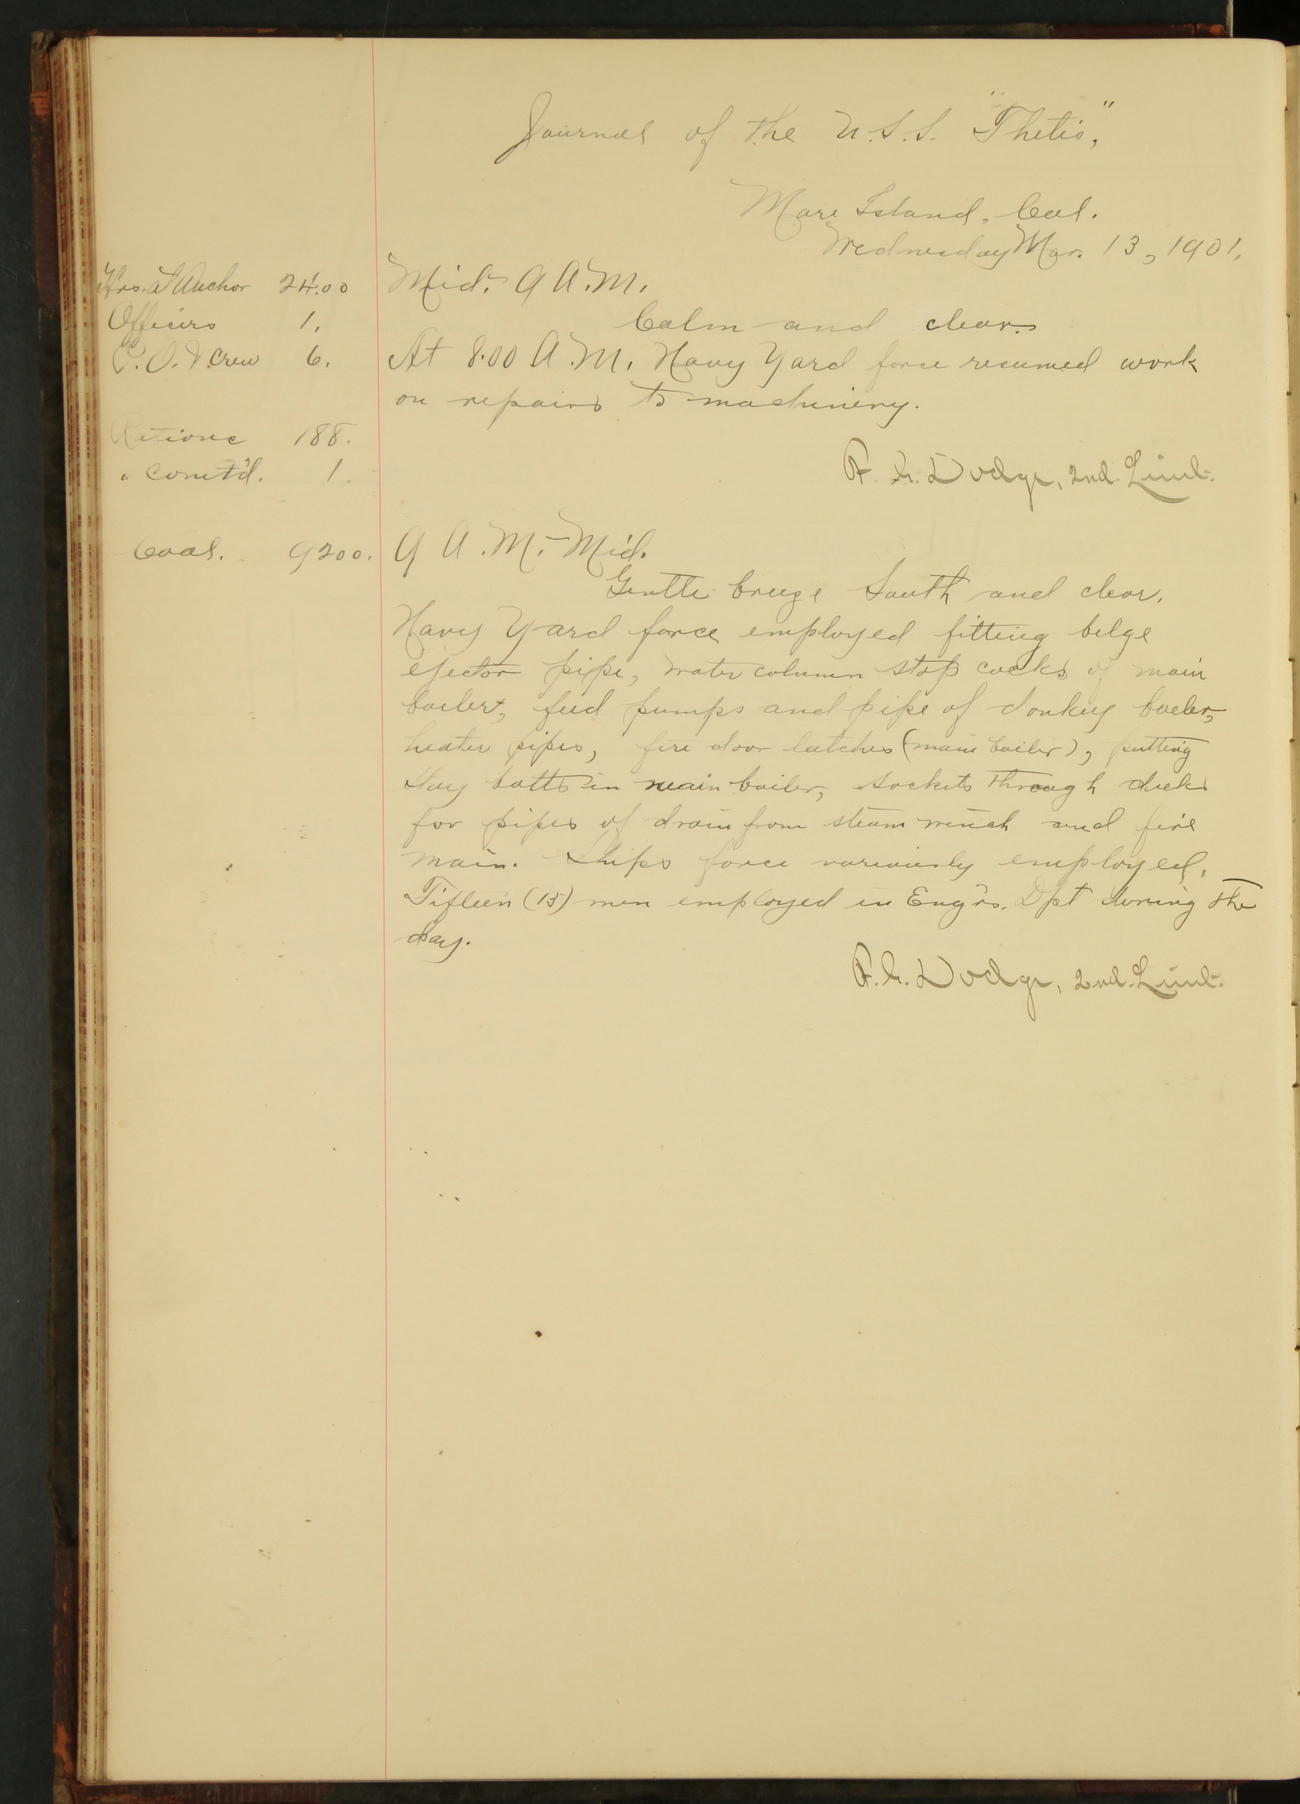 Journal of the U.S.S. "Thetis,"
Mare Island, Cal.
Wednesday Mar. 13, 1901.
Hrs. at Anchor 24.00
Officers 1.
P. O. & Crew 6.
Rations 188.
" comt'd. 1.
Coal. 9200.
Mid.- 9 A.M.
Calm and clear.
At 8.00 A.M. Navy Yard force resumed work
on repairs to machinery.
F. G. Dodge, 2nd. Lieut.
9 A.M.- Mid.
Gentle breeze South and clear.
Navy Yard force employed fitting bilge
ejector pipe, water column stop cocks of main
boiler, feed pumps and pipe of donkey boiler,
heater pipes, fire door latches (main boiler), putting
stay bolts in main boiler, sockets through deck
for pipes of drain from steam winch and fire
main. Ships force variously employed.
Fifteen (15) men employed in Eng'rs. Dpt during the
day.
F. G. Dodge, 2nd. Lieut.